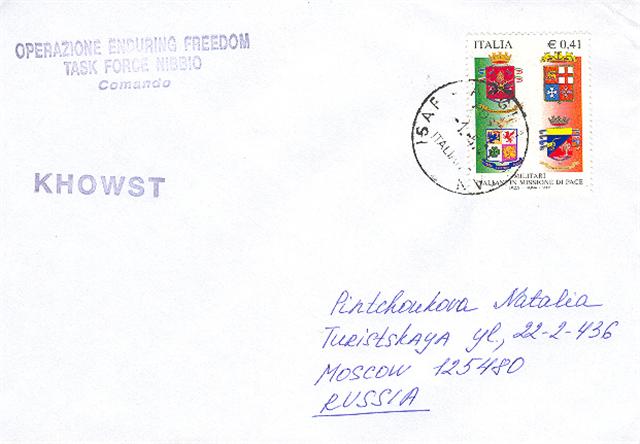 OPERAZIONE ENDURING FREEDOM
TASK FORCE NIBBIO
Comando
ITALIA € 0,41
ISAF
ITALIAN
MILITARI
ITALIANI IN MISSIONE DI PACE
KHOWST
Pintchoukova Natalia
Turistskaya yl., 22-2-436
Moscow 125480
RUSSIA